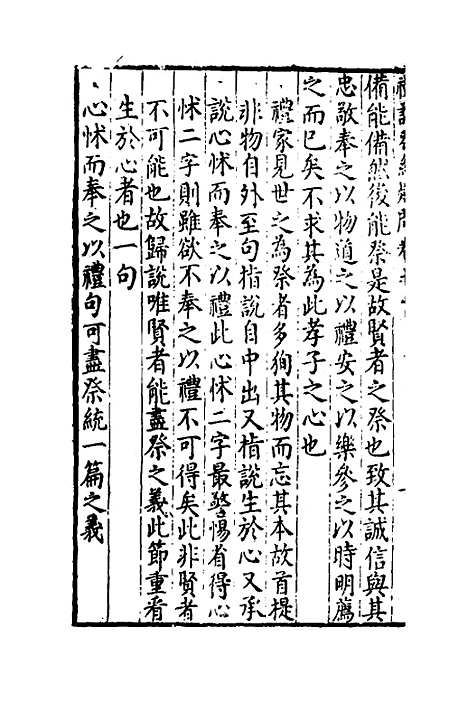 備能備然後能祭是故賢者之祭也致其誠信與其
忠敬奉之以物道之以禮安之以樂參之以時明薦
之而已矣不求其為此孝子之心也
禮家見世之為祭者多狥其物而忘其本故首提
非物自外至句指說自中出又指說生於心又承
說心怵而奉之以禮此心怵二字最警惕省得心
怵二字則雖欲不奉之以禮不可得矣此非賢者
不可能也故歸說唯賢者能盡祭之義此節重看
生於心者也一句
心怵而奉之以禮句可盡祭統一篇之義